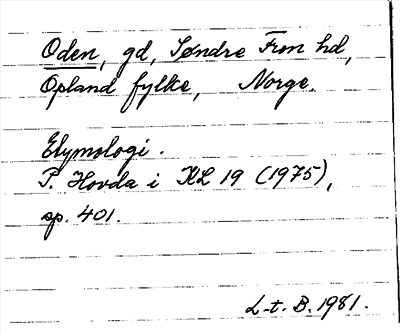 Oden, gd, Søndre Fron hd,
Opland fylke, Norge.
Etymologi.
P. Hovda i KL 19 (1975),
sp. 401.
L-t. B. 1981.